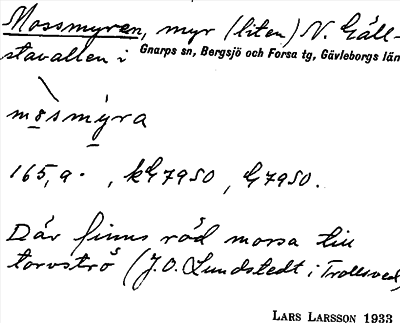 Mossmyren, myr (liten) N. Gäll-
stavallen i Gnarps sn, Bergsjö och Forsa tg, Gävleborgs län
mosmýra
165,a. , kG7950, G7950.
Där finns röd morsa till
torvströ (J.O. Lundstedt i Trollsved)
LARS LARSSON 1933